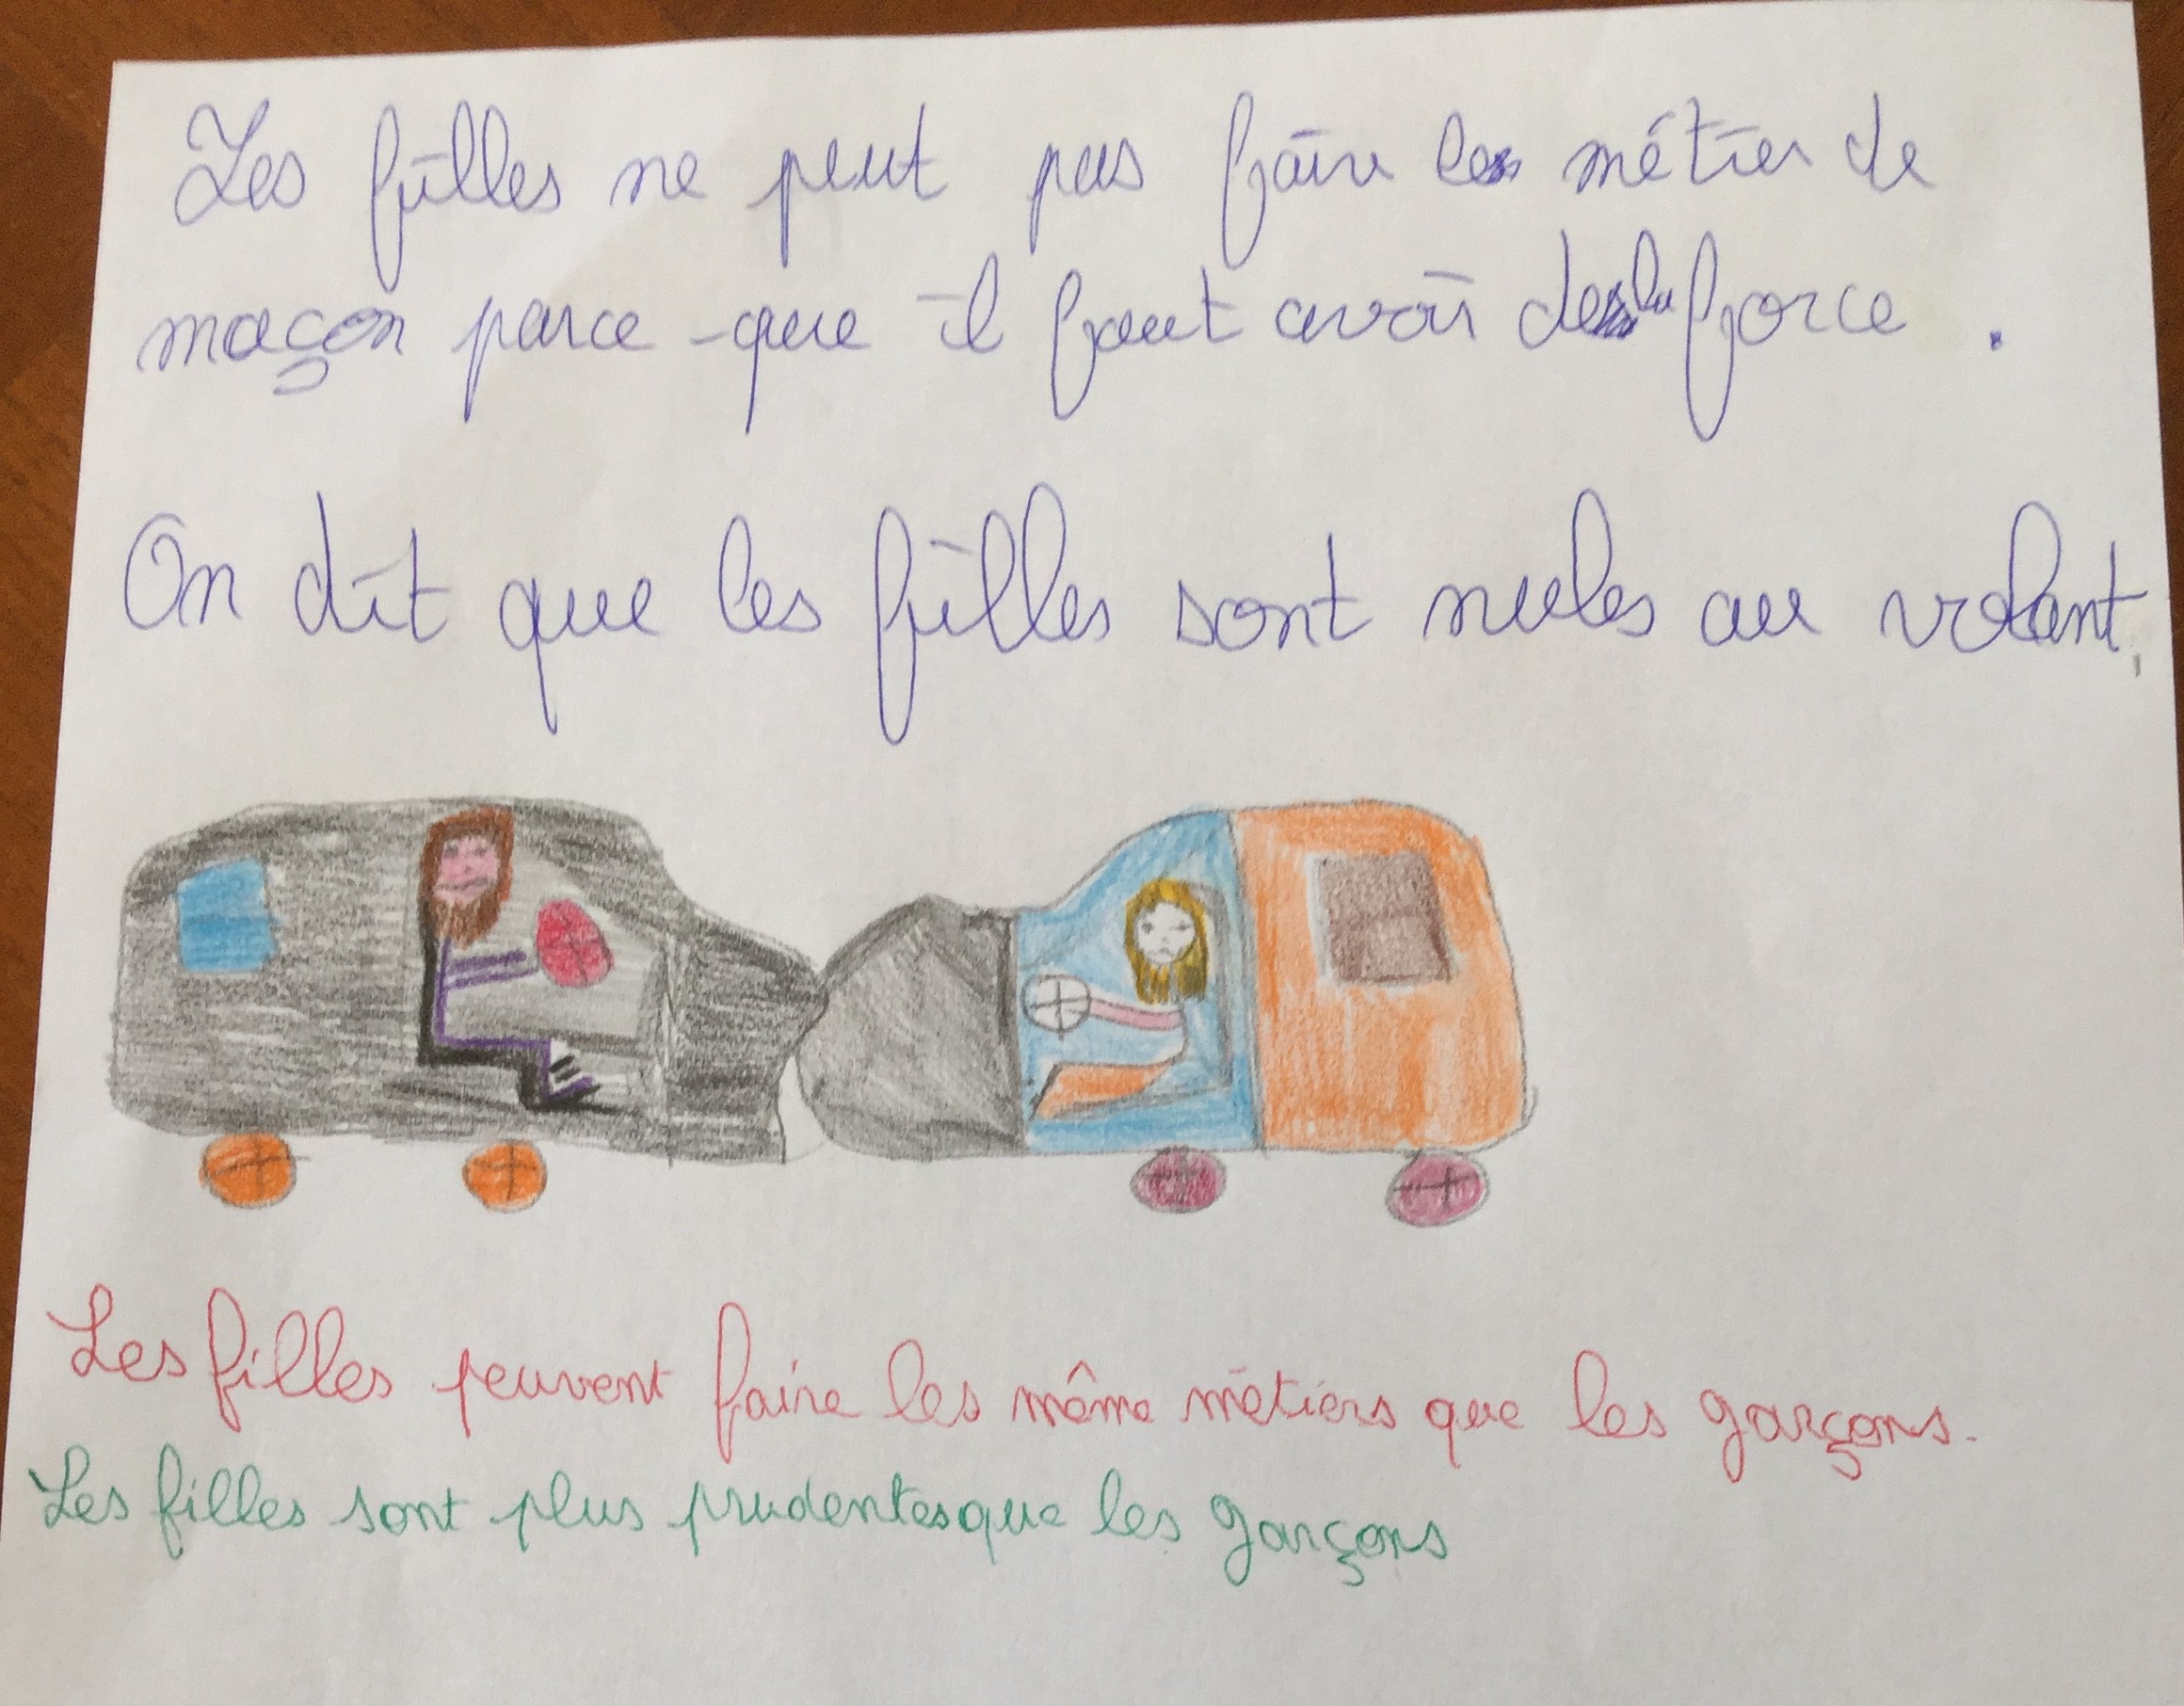 Les filles ne peut pas faire le métier de
maçon parce-que il faut avoir de la force.
On dit que les filles sont nules au volant.
Les filles peuvent faire les même métiers que les garçons.
Les filles sont plus prudentes que les garçons